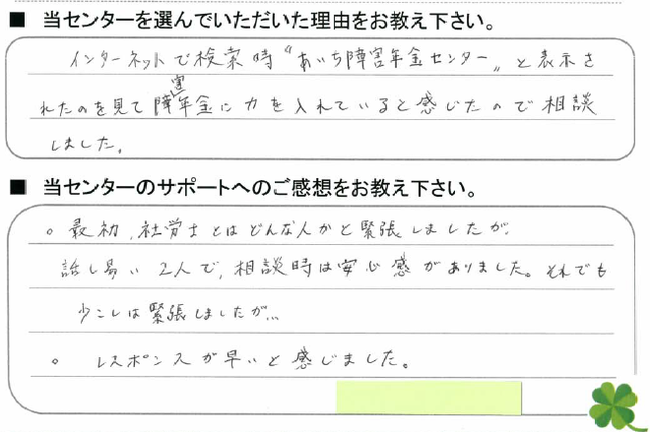 ■ 当センターを選んでいただいた理由をお教え下さい。
インターネットで検索時“あいち障害年金センター”と表示さ
れたのを見て障害年金に力を入れていると感じたので相談
しました。
■ 当センターのサポートへのご感想をお教え下さい。
。最初、社労士とはどんな人かと緊張しましたが、
話し易い2人で、相談時は安心感がありました。それでも
少こしは緊張しましたが...
。 レスポンスが早いと感じました。